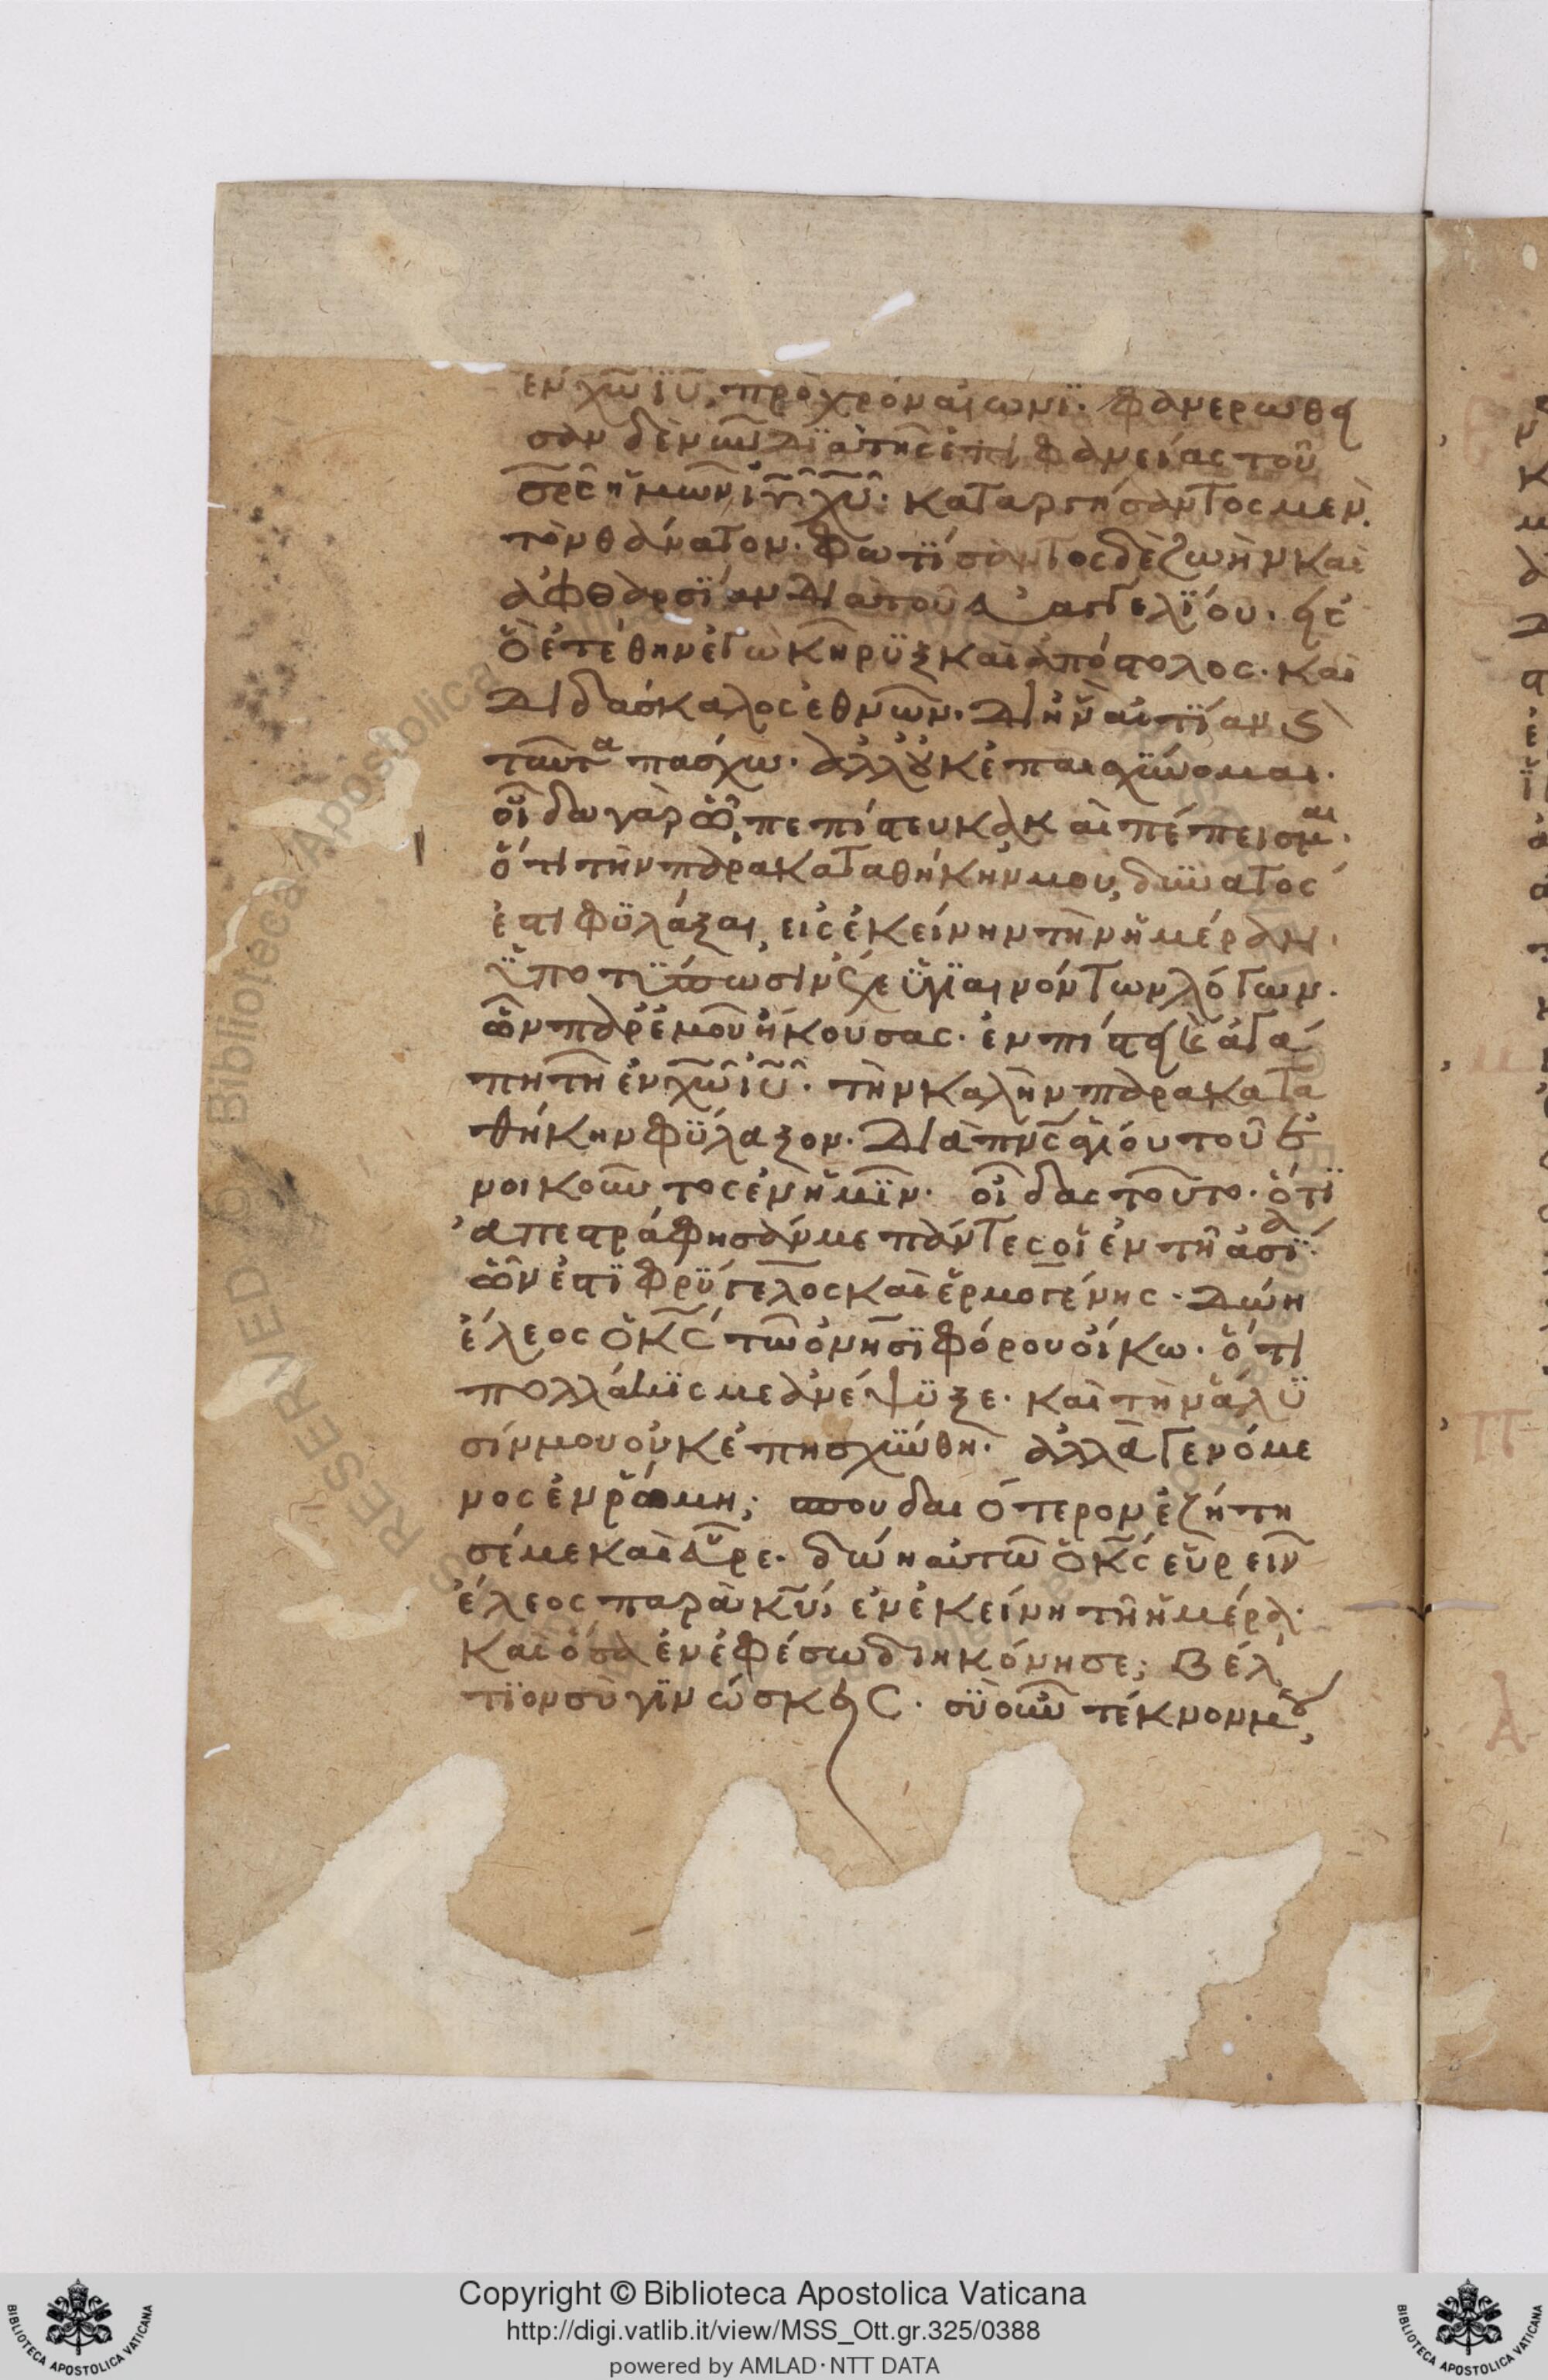 ἐν χω ιυ, πρὸ χρόν αἰωνί. φανερωθεῖ
σαν δὲ νῦν διὰ τῆς ἐπιφανείας τοῦ
σρς ἡμῶν ιυ χυ. καταργήσαντος μὲν
τὸν θάνατον. φωτίσαντος δὲ ζωὴν καὶ
ἀφθαρσίαν διὰ τοῦ εὐαγγελίου. εἰς
ὃ ἐτέθην ἐγὼ κῆρυξ καὶ ἀπόστολος. καὶ
διδάσκαλος ἐθνῶν. δι ἣν αἰτίαν ϗ
ταῦτα πάσχω. ἀλλ οὐκ ἐπαισχύνομαι.
οἶδα γὰρ ὧ, πεπίστευκα καὶ πέπεισμαι.
ὅτι τὴν παρακαταθήκην μου, δυνατός
ἐστι φυλάξαι, εἰς ἐκείνην τὴν ἡμέραν.
ὑποτύπωσιν ἔχε ὑγιαινόντων λόγων.
ὧν παρ ἐμοῦ ἤκουσας. ἐν πίστει ϗ ἀγά
πη τῆ ἐν χω ιυ. τὴν καλὴν παρακατα
θήκην φύλαξον. διὰ πνς ἁγίου τοῦ ἐ
νοικοῦντος ἐν ἡμῖν. οἶδας τοῦτο. ὅτι
ἀπεστράφησάν με πάντες οἱ ἐν τῆ ἀσία.
ὧν ἐστι φρύγελος καὶ ἑρμογένης. δώη
ἔλεος ὁ κς τῶ ὀνησιφόρου οἴκω. ὅτι
πολλάκις με ἀνέψυξε. καὶ τὴν ἅλυ
σίν μου οὐκ ἐπησχύνθη. ἀλλὰ γενόμε
νος ἐν ῥώμη; σπουδαιότερον ἐζήτη
σέ με καὶ εὗρε. δώη αὐτῶ ὁ κς εὑρεῖν
ἔλεος παρὰ κυ, ἐν ἐκείνη τῆ ἡμέρα.
καὶ ὅσα ἐν ἐφέσω διηκόνησε; βέλ
τιον σὺ γινώσκεις. σὺ οὖν τέκνον μου,
Copyright © Biblioteca Apostolica Vaticana
http://digi.vatlib.it/view/MSS_Ott.gr.325/0388
powered by AMLAD·NTT DATA